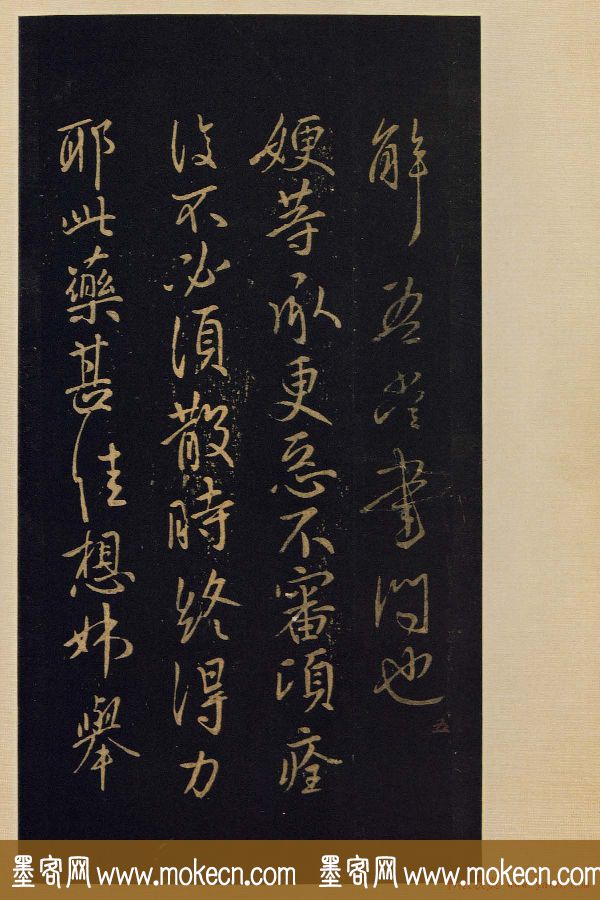 解 吾當書問也
五
㛐等承更惡不審頃痊
復不必須散時終得力
耶此藥甚佳想姊舉
墨客网 www.mokecn.com 墨客网 www.mokecn.com